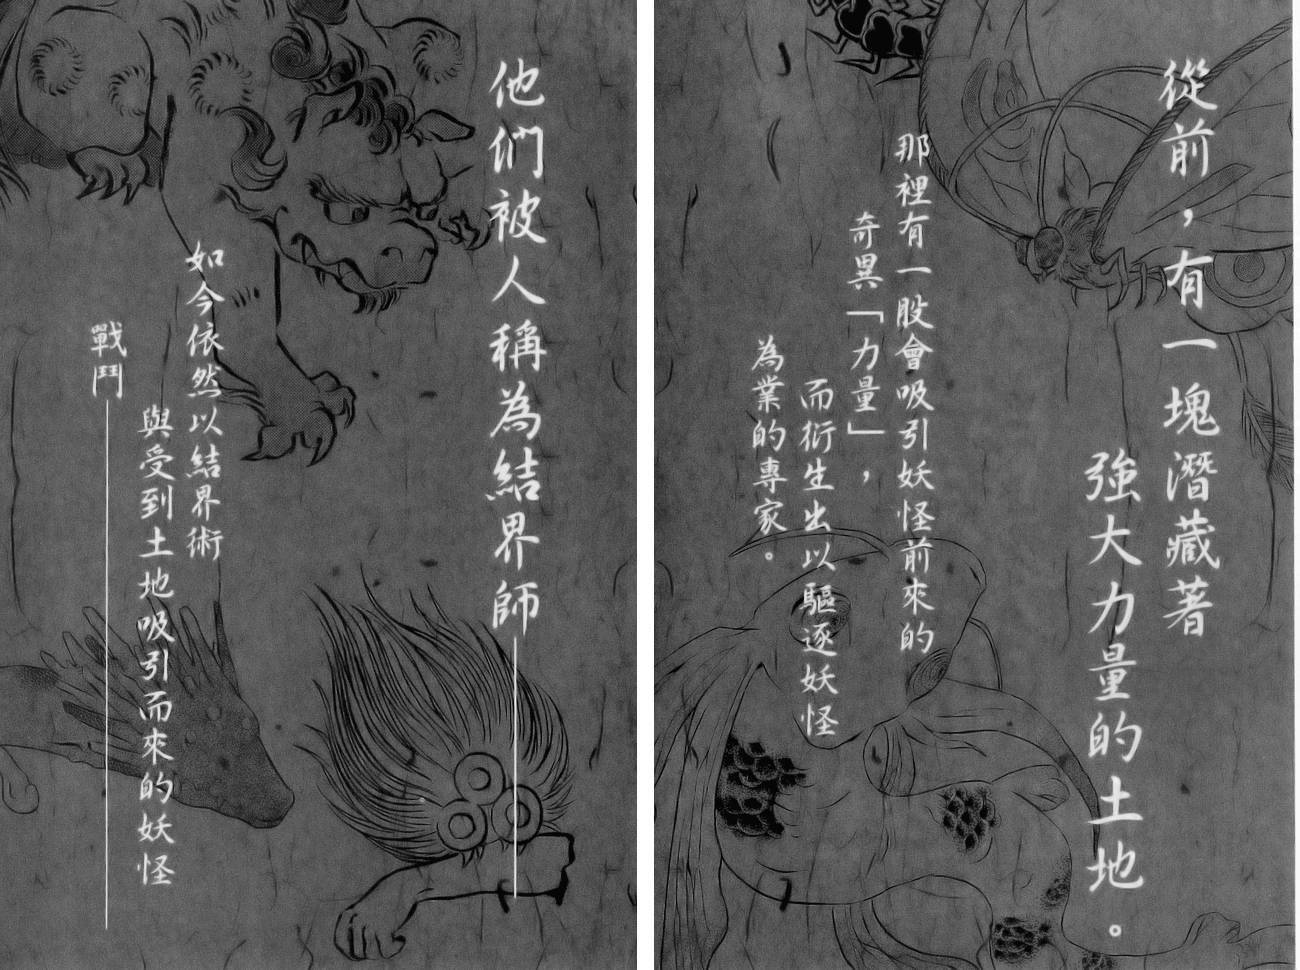 從前，有一塊潛藏著
強大力量的土地。
那裡有一股會吸引妖怪前來的
奇異「力量」，
而衍生出以驅逐妖怪
為業的專家。
他們被人稱為結界師——
如今依然以結界術
與受到土地吸引而來的妖怪
戰鬥——